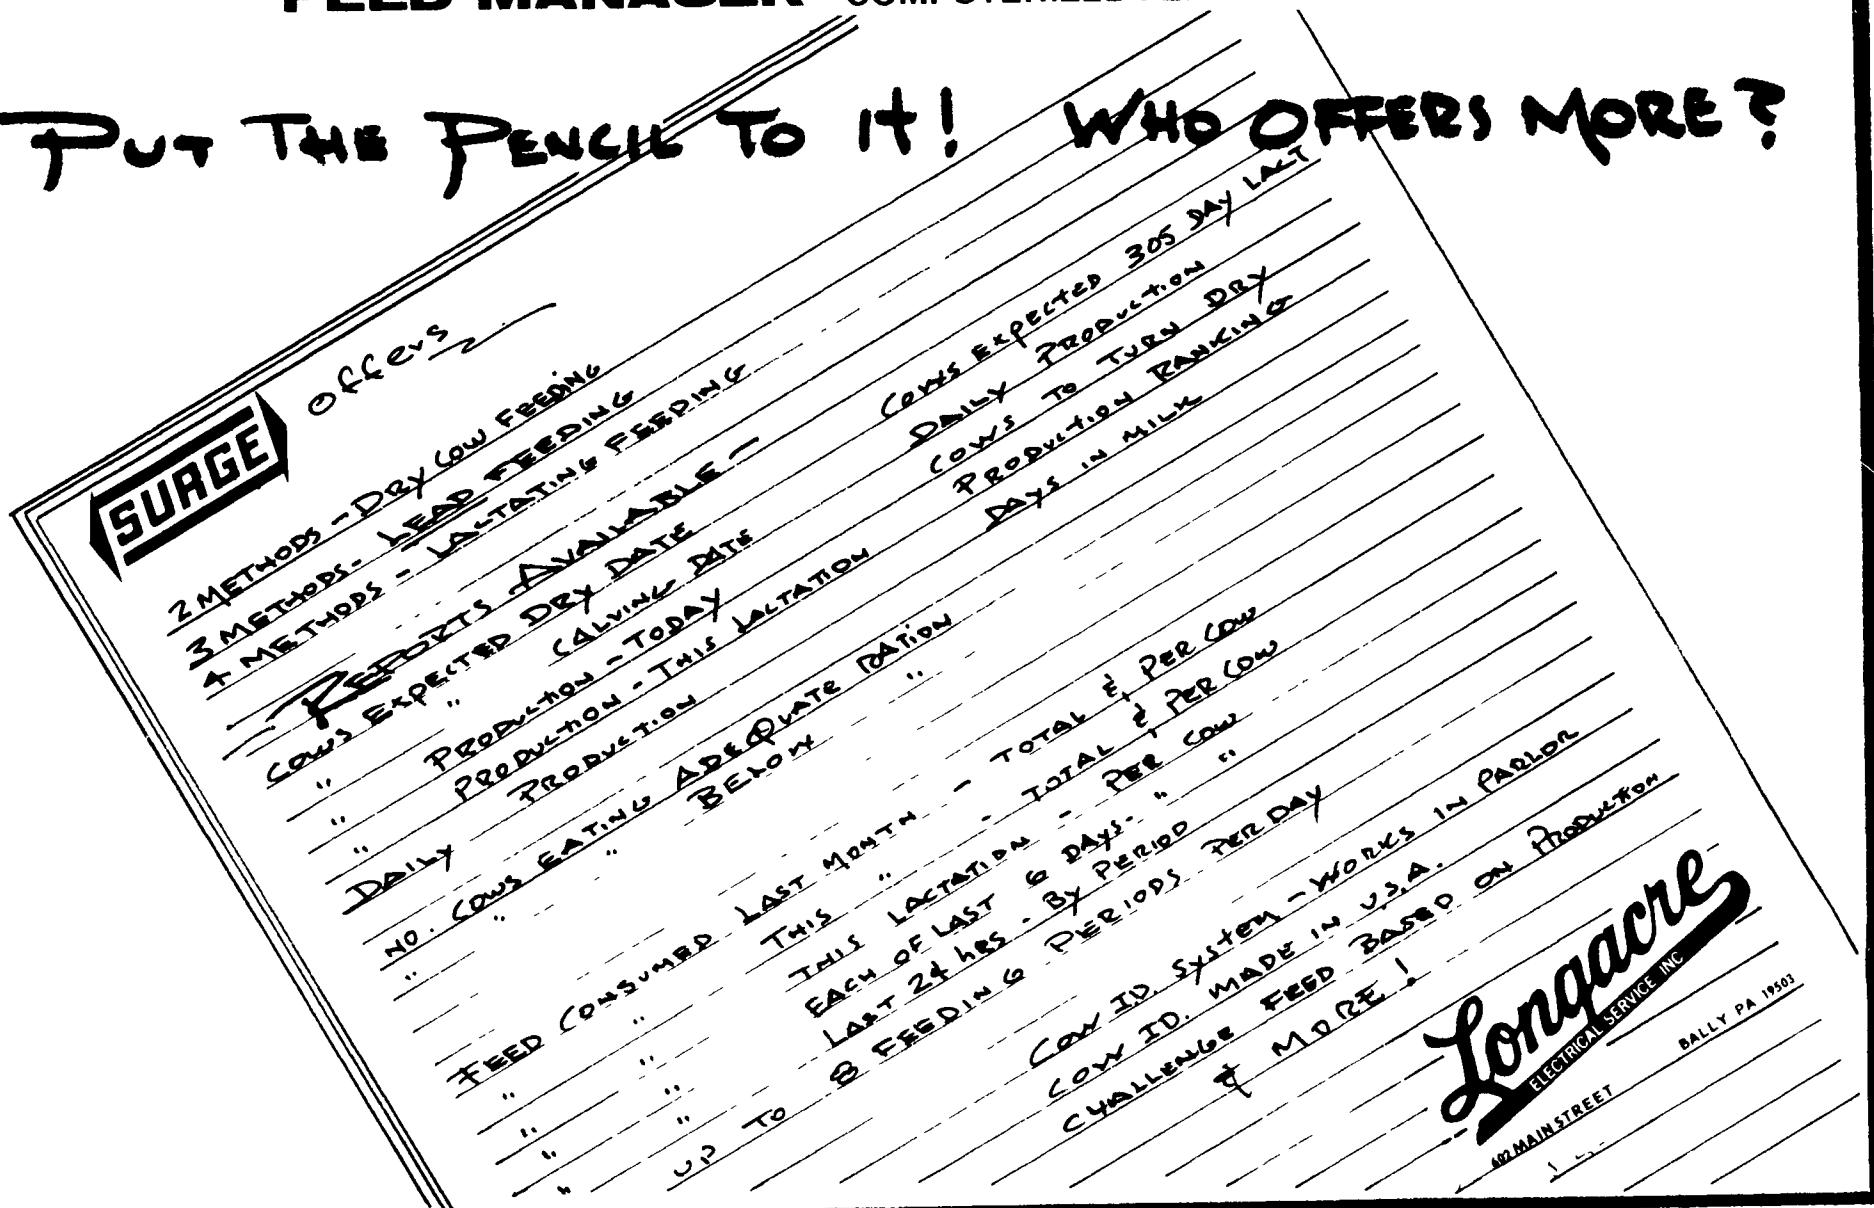 FEED MANAGER COMPUTERIZED
PUT THE PENCIL TO It! WHO OFFERS MORE?
SURGE Offers
2 METHODS - DRY COW FEEDING
3 METHODS - LEAD FEEDING
4 METHODS - LACTATING FEEDING
REPORTS AVAILABLE -
COWS EXPECTED DRY DATE
" " CALVING DATE
" PRODUCTION - TODAY
" PRODUCTION - THIS LACTATION
DAILY PRODUCTION
COWS EXPECTED 305 DAY LACT
DAILY PRODUCTION
COWS TO TURN DRY
PRODUCTION RANKING
DAYS IN MILK
NO. COWS EATING ADEQUATE RATION
" " " BELOW "
FEED CONSUMED LAST MONTH - TOTAL & PER COW
" " THIS " - TOTAL & PER COW
" " THIS LACTATION - PER COW
" " EACH OF LAST 6 DAYS - " "
" " LAST 24 hRS - By PERIOD
UP TO 8 FEEDING PERIODS PER DAY
COW I.D. SYSTEM - WORKS IN PARLOR
COW ID. MADE IN U.S.A.
CHALLENGE FEED BASED ON PRODUCTION
& MORE!
Longacre
ELECTRICAL SERVICE INC
602 MAIN STREET BALLY PA 19503